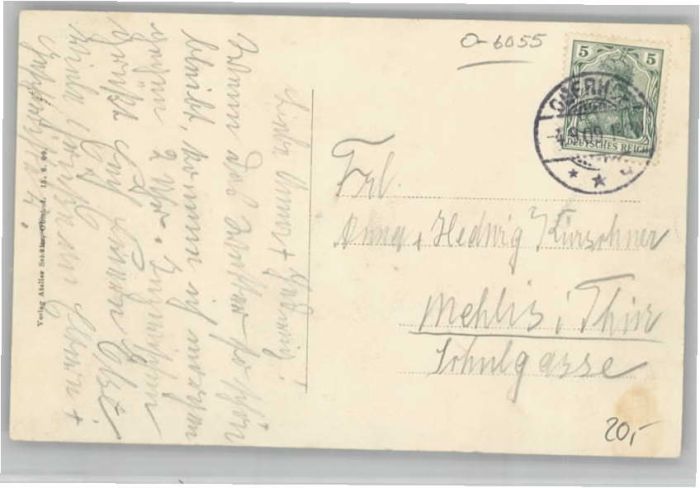 O-6055
5 5
OBERHOF
4.9.09.
DEUTSCHES REICH
Frl.
Anna + Hedwig Kürschner
Mehlis i/Thür
Schulgasse
20,-
Liebe Anna + Hedwig!
Wenn das Wetter so schön
bleibt, komme ich morgen
gegen 2 Uhr.
Grüßt Euch Eure Else
Viele Grüße an Eltern +
Verlag Atelier Oberhof.